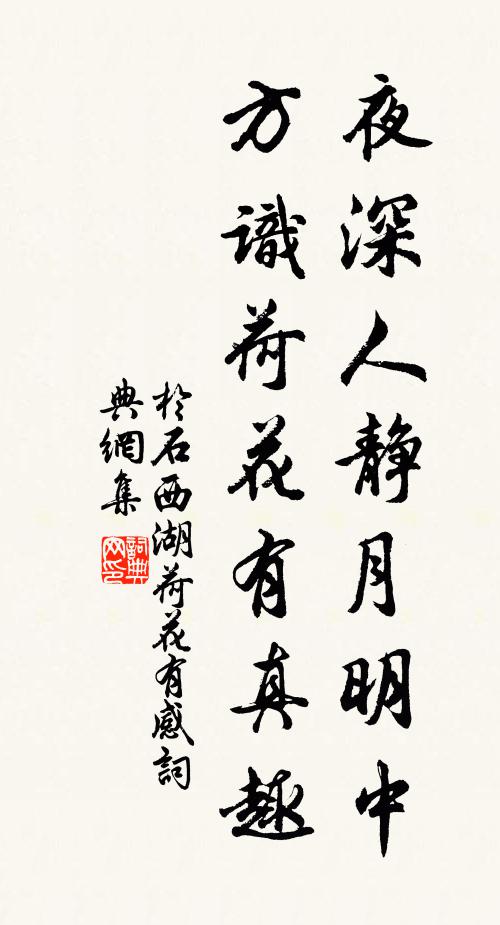 夜深人静月明中
方識荷花有真趣
於石西湖荷花有感詞
典網集
詞典
网印